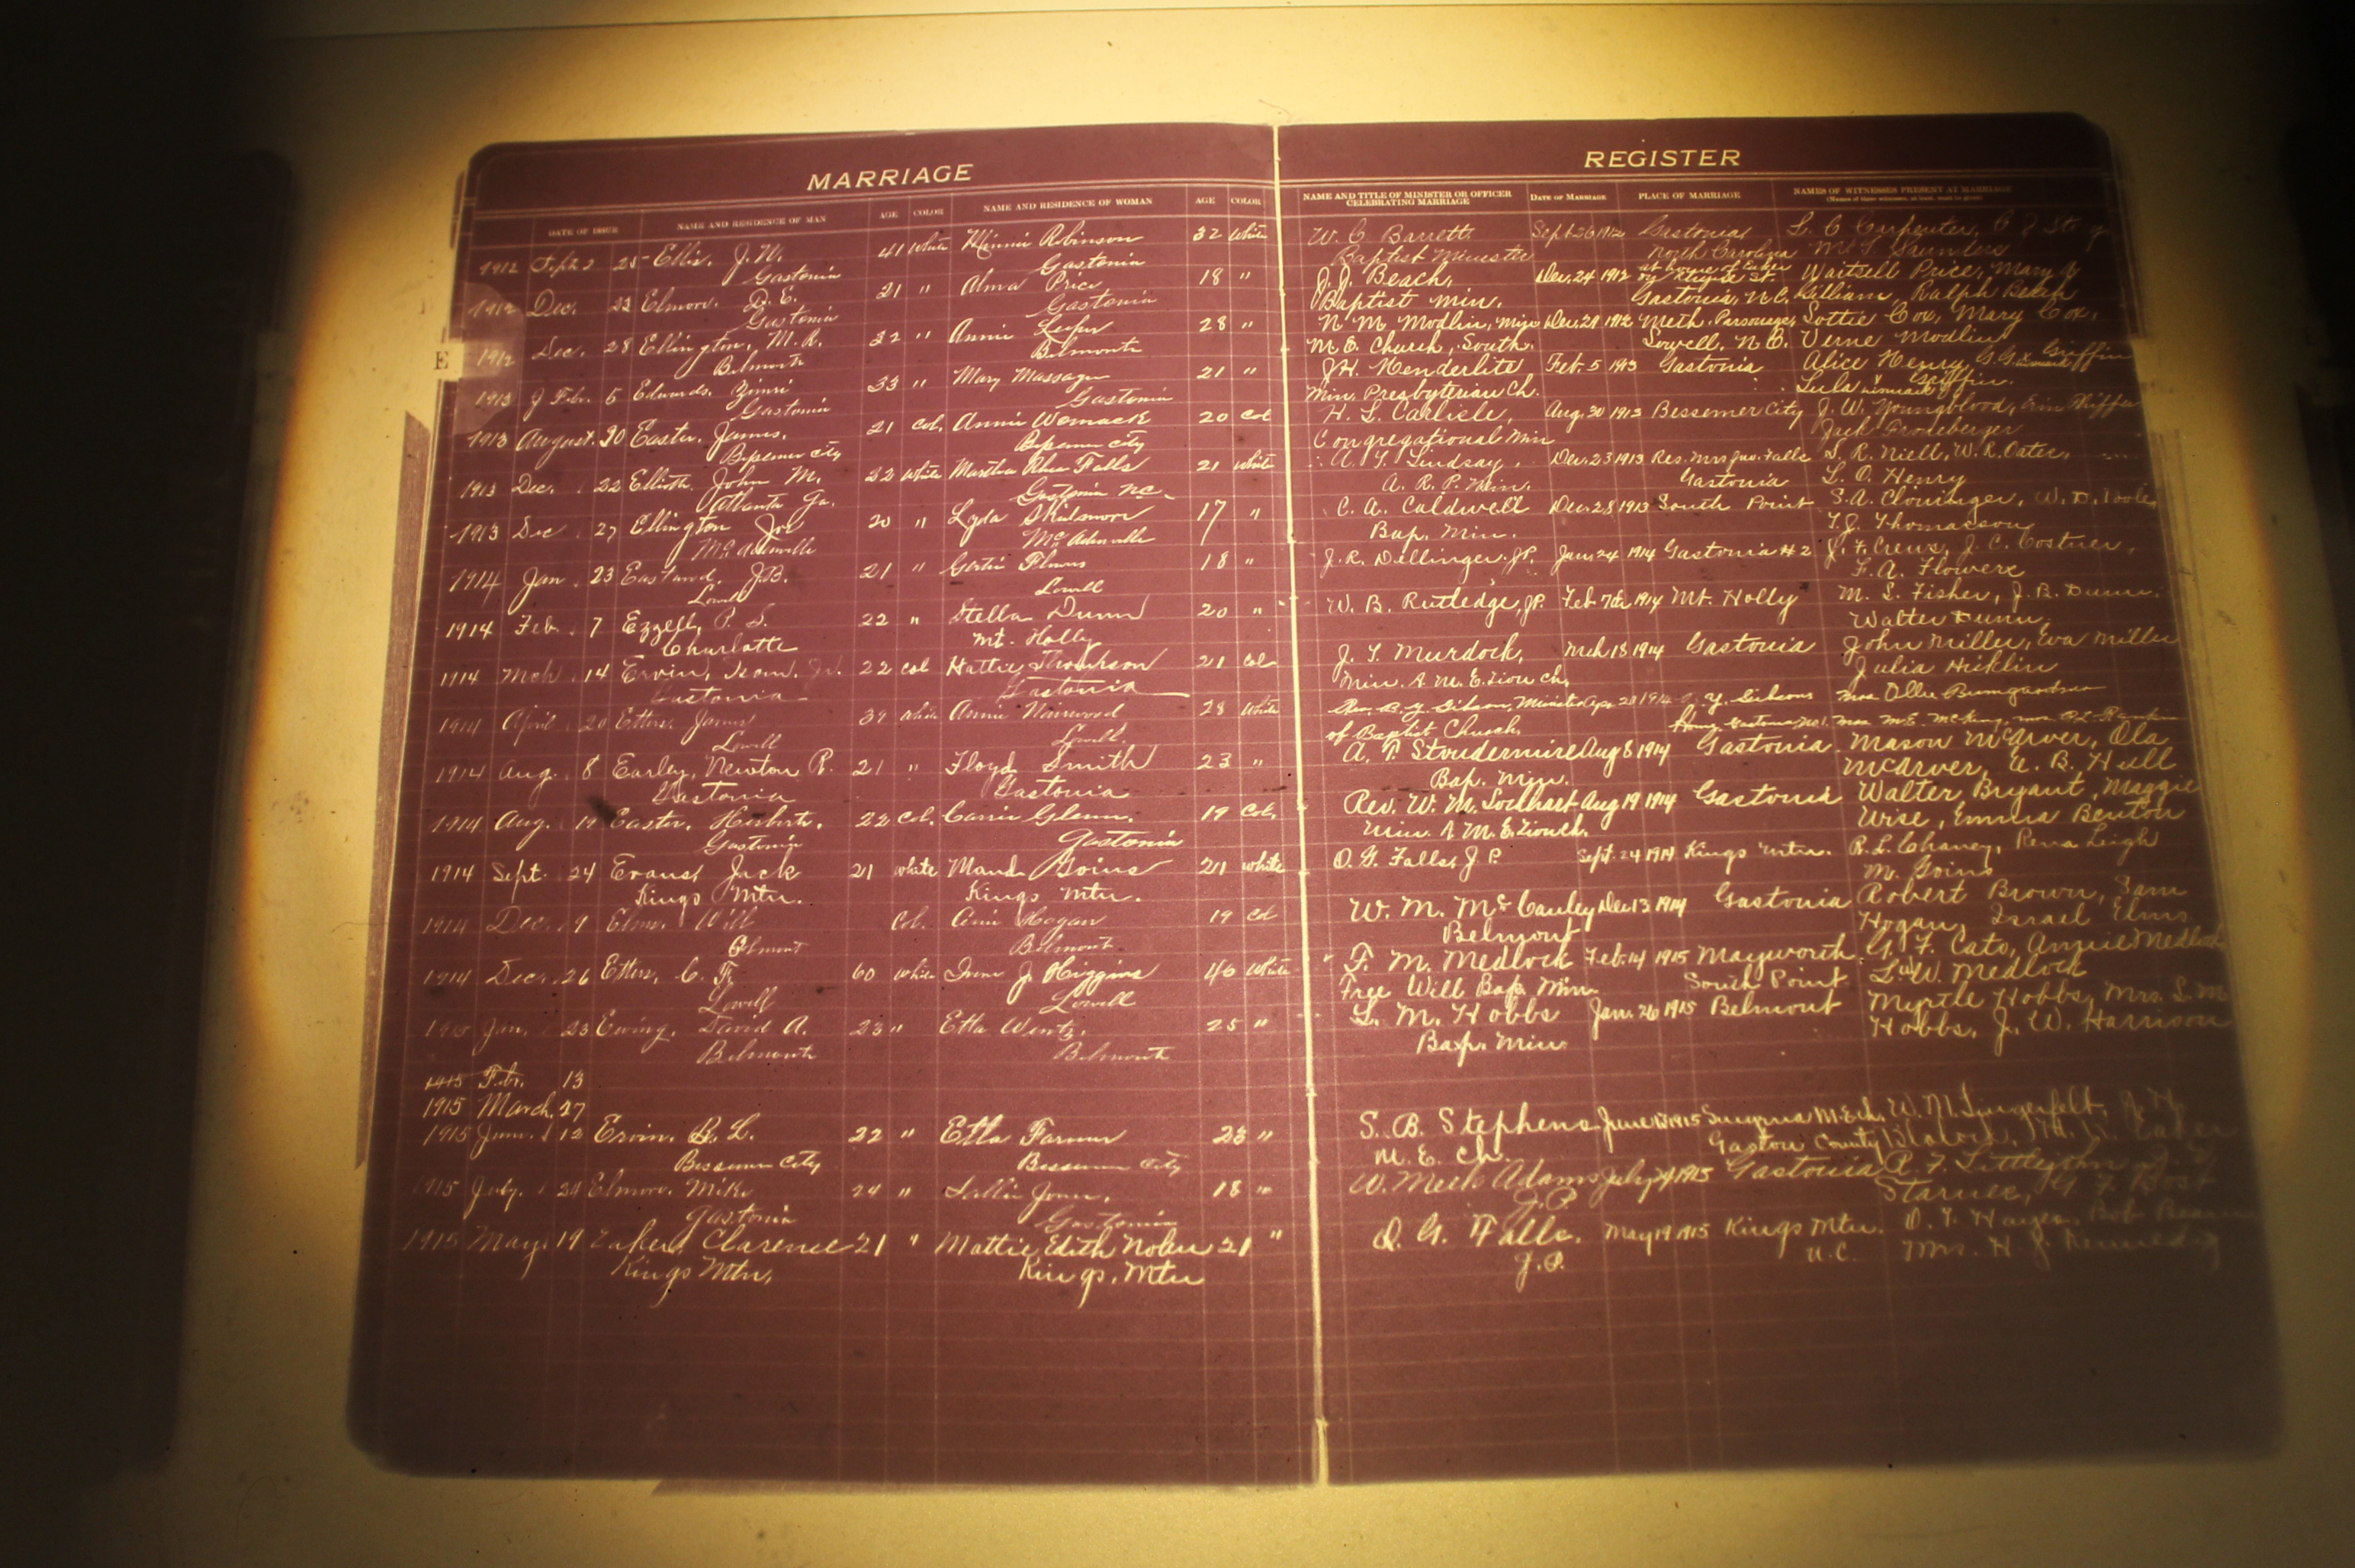 MARRIAGE
REGISTER
DATE OF ISSUE NAME AND RESIDENCE OF MAN AGE COLOR NAME AND RESIDENCE OF WOMAN AGE COLOR
NAME AND TITLE OF MINISTER OR OFFICER CELEBRATING MARRIAGE DATE OF MARRIAGE PLACE OF MARRIAGE NAMES OF WITNESSES PRESENT AT MARRIAGE
E
1912 Sept. 25 Ellis, J. W. 41 White Minnie Robinson 32 White
Gastonia Gastonia
1912 Dec. 23 Elmore. D. E. 21 " Alma Price 18 "
Gastonia Gastonia
1912 Dec. 28 Ellington, M. R. 22 " Annie 28 "
Belmont Belmont
1913 Feb. 5 Edwards. Zimri 33 " Mary Massagee 21 "
Gastonia Gastonia
1913 August. 30 Easter. James. 21 Col. Annie Womack 20 Col
Bessemer City Bessemer City
1913 Dec. 22 Elliott. John M. 22 White Martha Rhea Falls 21 White
Atlanta Ga. Gastonia N.C.
1913 Dec 27 Ellington Joe 20 " Lyda Skidmore 17 "
McAdenville McAdenville
1914 Jan 23 Eastwood. J.B. 21 " Gertie Flowers 18 "
Lowell Lowell
1914 Feb. 7 Ezzell, P. S. 22 " Stella Dunn 20 "
Charlotte Mt. Holly
1914 Mch 14 Ervin, Isom. Jr. 22 col Hattie Thompson 21 Col
Gastonia Gastonia
1914 April 20 Etters. James 39 White Annie 28 White
Lowell Lowell
1914 Aug. 8 Earley, Newton R. 21 " Floyd Smith 23 "
Gastonia Gastonia
1914 Aug. 19 Easter. Herbert. 22 Col. Carrie Glenn. 19 Col.
Gastonia Gastonia
1914 Sept. 24 Evans, Jack 21 white Maud Goins 21 white
Kings Mtn. Kings Mtn.
1914 Dec. 9 Elms. Will Col. Annie Hogan 19 Col
Belmont Belmont
1914 Dec. 26 Etters, C. F. 60 white Irene J. Higgins 46 White
Lowell Lowell
1915 Jan. 23 Ewing. David A. 23 " Etta Wentz. 25 "
Belmont Belmont
1915 Feb. 13
1915 March, 27
1915 June. 12 Ervin. B. L. 22 " Etta Farmer 23 "
Bessemer City Bessemer City
1915 July. 24 Elmore. Mike 24 " Lillie Jones. 18 "
Gastonia Gastonia
1915 May. 19 Eaker, Clarence 21 " Mattie Edith Nolen 21 "
Kings Mtn, Kings, Mtn
W. C. Barrett Sept 26 1912 Gastonia L. C. Carpenter,
Baptist Minister North Carolina Saunders
J. J. Beach, Dec. 24 1912 Waitsell Price, Mary
Baptist Min. Gastonia, N.C. Killian, Ralph Beach
N. M. Modlin, Min Dec. 29 1912 Meth. Parsonage, Lottie Cox, Mary Cox,
M. E. Church, South. Lowell, N.C. Verne Modlin
J. H. Henderlite Feb. 5 1913 Gastonia Alice Henry, Griffin
Min. Presbyterian Ch. Lula Griffin.
H. L. Carlisle, Aug. 30 1913 Bessemer City J. W. Youngblood,
Congregational Min Jack Froneberger
A. T. Lindsay, Dec. 23 1913 Res. Mrs Jas. Falls S. R. Niell, W. R. Oates,
A. R. P. Min. Gastonia L. O. Henry
C. A. Caldwell Dec. 28 1913 South Point S. A. Clouinger,
Bap. Min. T. J. Thomasson
J. R. Dellinger. J.P. Jan. 24 1914 Gastonia #2 J. F. Crews, J. C. Costner,
F. A. Flowers
W. B. Rutledge, J.P. Feb 7th 1914 Mt. Holly M. S. Fisher, J. B. Dunn.
Walter Dunn,
J. T. Murdock, Mch 18 1914 Gastonia John Miller, Eva Miller
Min. A. M. E. Zion Ch. Julia Hicklin
Rev. B. Y. Gibson, Minister Apr. 20 1914 Mrs Ollie Bumgardner
of Baptist Church.
A. P. Stoudermire Aug 8 1914 Gastonia. Mason McArver, Ola
Bap. Min. McArver, A. B. Hull
Rev. W. M. Lockhart Aug 19 1914 Gastonia Walter Bryant, Maggie
Min. A M. E. Zion Ch. Wise, Emma Benton
O. G. Falls, J P. Sept. 24 1914 Kings Mtn. R. L. Chaney, Rena Leigh
M. Goins
W. M. McCauley Dec 13 1914 Gastonia Robert Brown, Sam
Belmont Hogan, Israel Elms
F. M. Medlock Feb. 14 1915 Mayworth G. F. Cato, Annie Medlock
Free Will Bap. Min. South Point L. W. Medlock
L. M. Hobbs Jan. 26 1915 Belmont Myrtle Hobbs, Mrs. L. M.
Bap. Min. Hobbs, J. W. Harrison
S. B. Stephens June 13 1915 Smyrna M.E. Ch. W. M. Lingerfelt,
M. E. Ch. Gaston County
W. Meek Adams July 24 1915 Gastonia R. F. Littlejohn
J. P. Starnes,
O. G. Falls. May 19 1915 Kings Mtn. O. T. Hayes, Bob
J. P. N.C. Mrs. H. J.